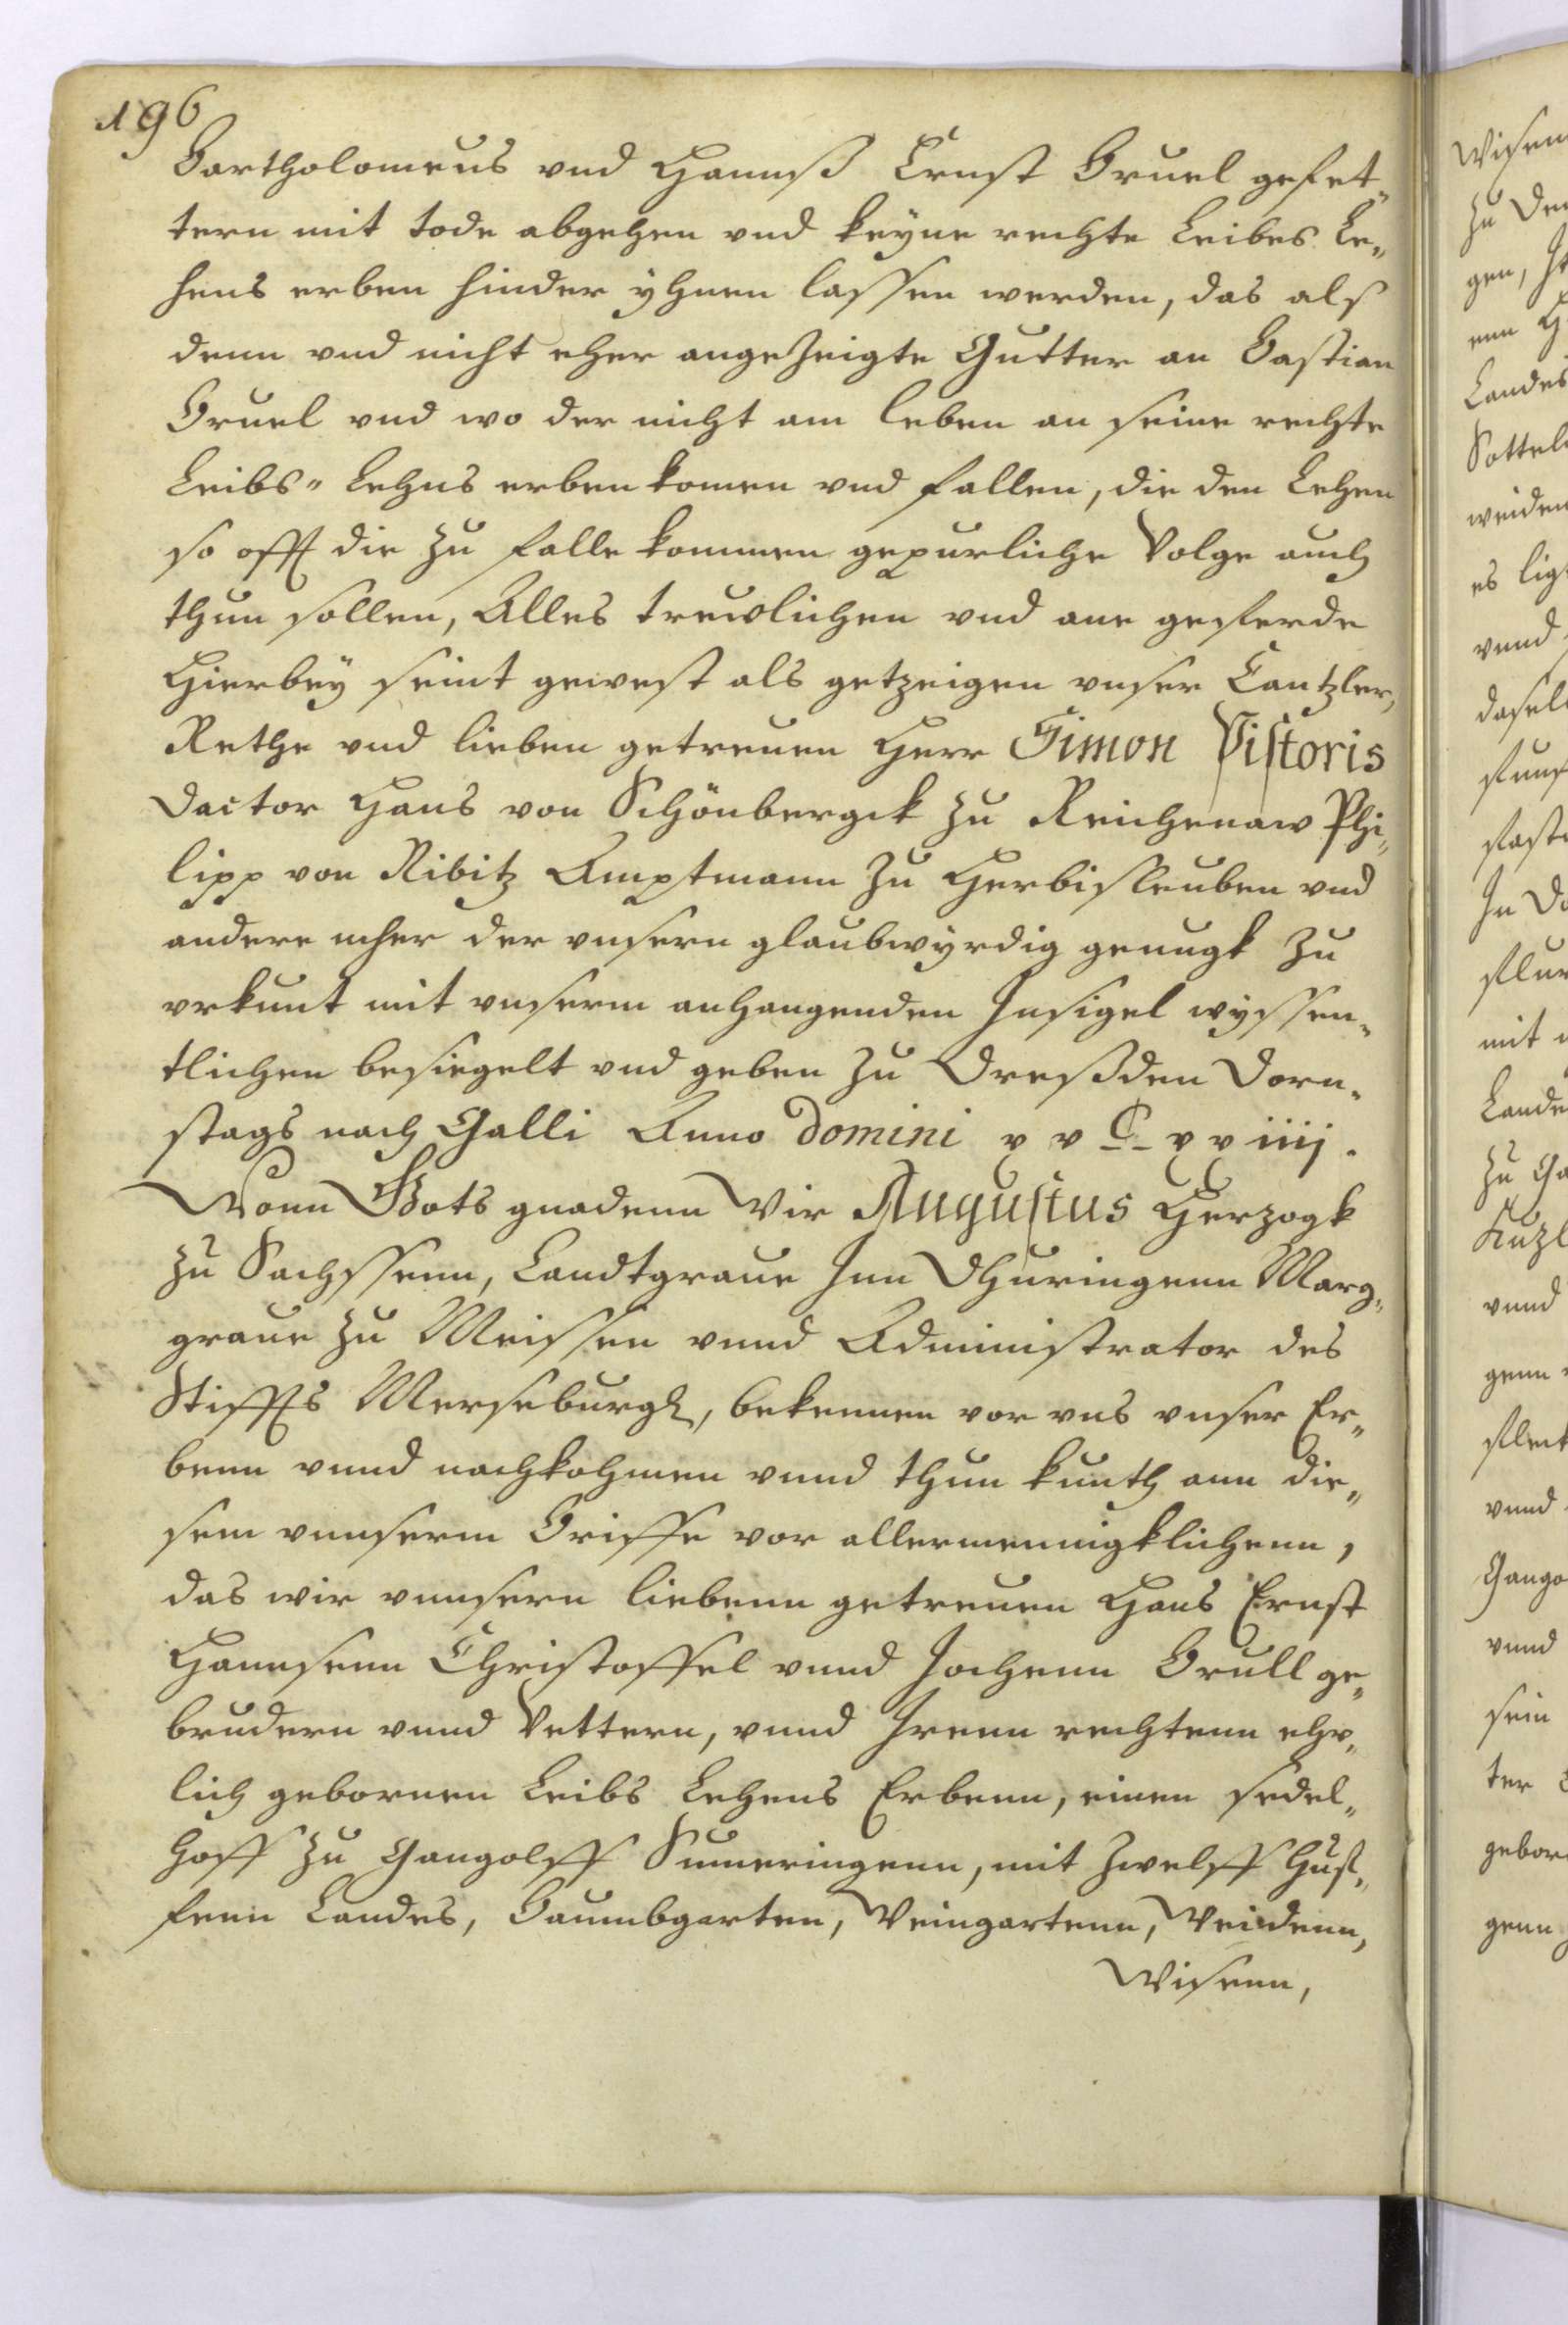 196
Bartholomeus vnd Hannß Ernst Bruel gefet„
tern mit tode abgehen vnd keyne rechte Leibes Le„
hens erben hinder yhnen lassen werden, das als
denn vnd nicht eher angezeigte Gutter an Bastian
Bruel vnd wo der nicht am leben an seine rechte
Leibs„ Lehns erben komen vnd fallen, die den Lehen
so offt die zu falle kommen gepurliche Volge auch
thun sollen, Alles trewlichen vnd ane geferde
Hierbey seint gewest als getzeigen vnser Cantzler,
Rethe vnd lieben getreuen Herr Simon Pistoris
Doctor Hans von Schönbergk zu Reichenaw Phi„
lipp von Ribitz Amptmann zu Herbisleuben vnd
andere meher der vnsern glaubwyrdig genugk zu
vrkunt mit vnserm anhangenden Insigel wyssen„
tlichen besiegelt vnd geben zu Dreßden Dorn„
stags nach Galli Anno domini x v C x x iiij.
Vonn Gots gnadenn Wir Augustus Herzogk
zu Sachssenn, Landtgraue Inn Dhuringenn Marg„
graue zu Meissen vnnd Administrator des
Stiffts Merseburgk, bekennen vor vns vnser Er„
benn vnnd nachkohmen vnnd thun kunth ann die„
sem vnnserm Briffe vor allermennigklichenn,
das wir vnnsern liebenn getreuen Hans Ernst
Hannsenn Christoffel vnnd Jochenn Brull ge„
brudern vnnd Vettern, vnnd Irenn rechtenn ehe„
lich gebornen Leibs Lehens Erbenn, einen sedel„
hoff zu Gangolff Sumeringenn, mit zwelff huf„
fenn Landes, Baumbgarten, Weingartenn, Weidenn,
Wisenn,